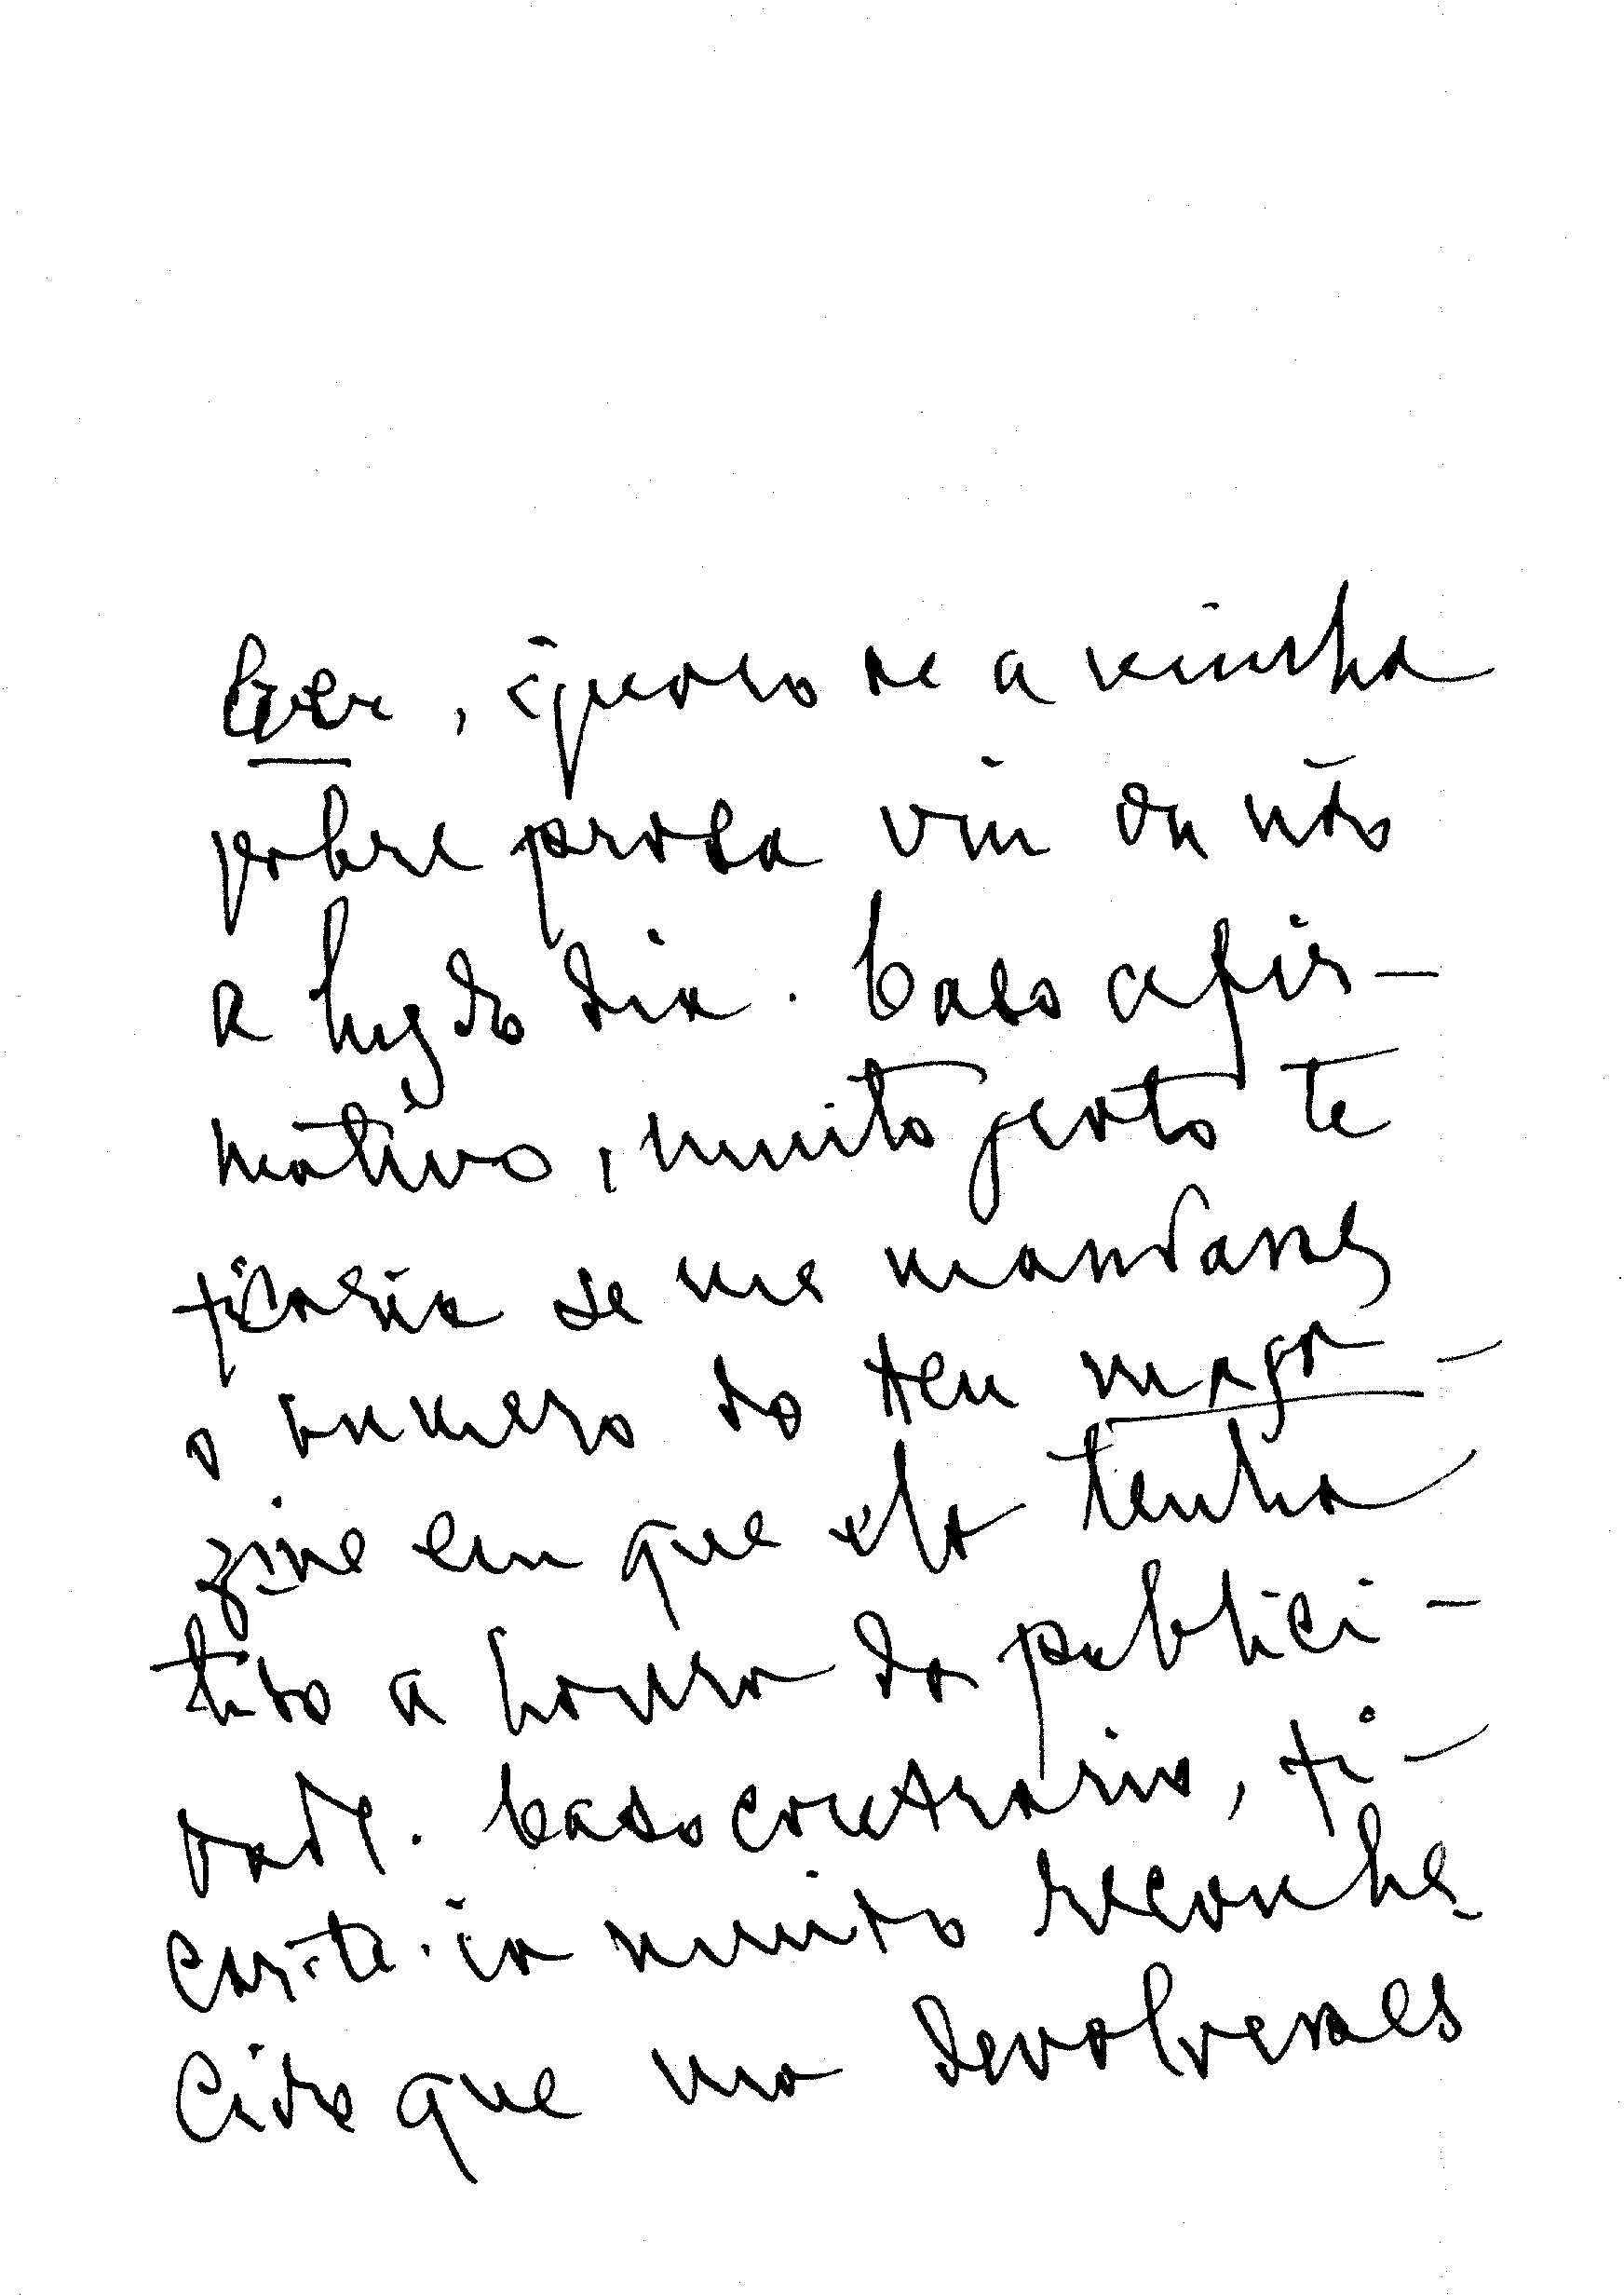 ignoro se a minha
pobre prosa viu ou não
a luz do dia. Caso afir-
mativo, muito grato te
ficaria se me mandasses
o numero do teu maga-
zine em que ela tenha
tido a honra da publici-
dade. Caso contrario, fi-
car-te-ia muito reconhe-
cido que ma devolvesses